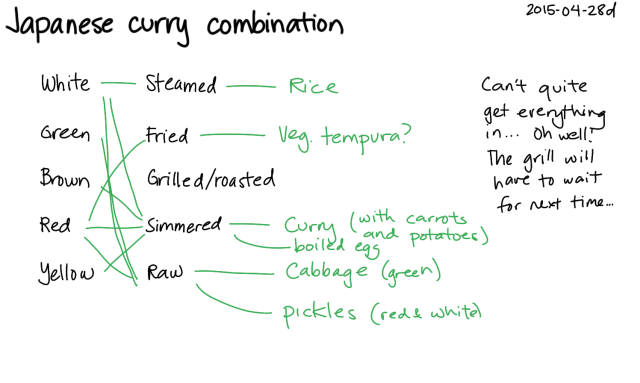 Japanese curry combination
2015-04-28d
White
Steamed
Rice
Green
Fried
Veg. tempura?
Brown
Grilled/roasted
Red
Simmered
Curry (with carrots
and potatoes)
boiled egg
Yellow
Raw
Cabbage (green)
pickles (red & white)
Can't quite
get everything
in... Oh well!
The grill will
have to wait
for next time...